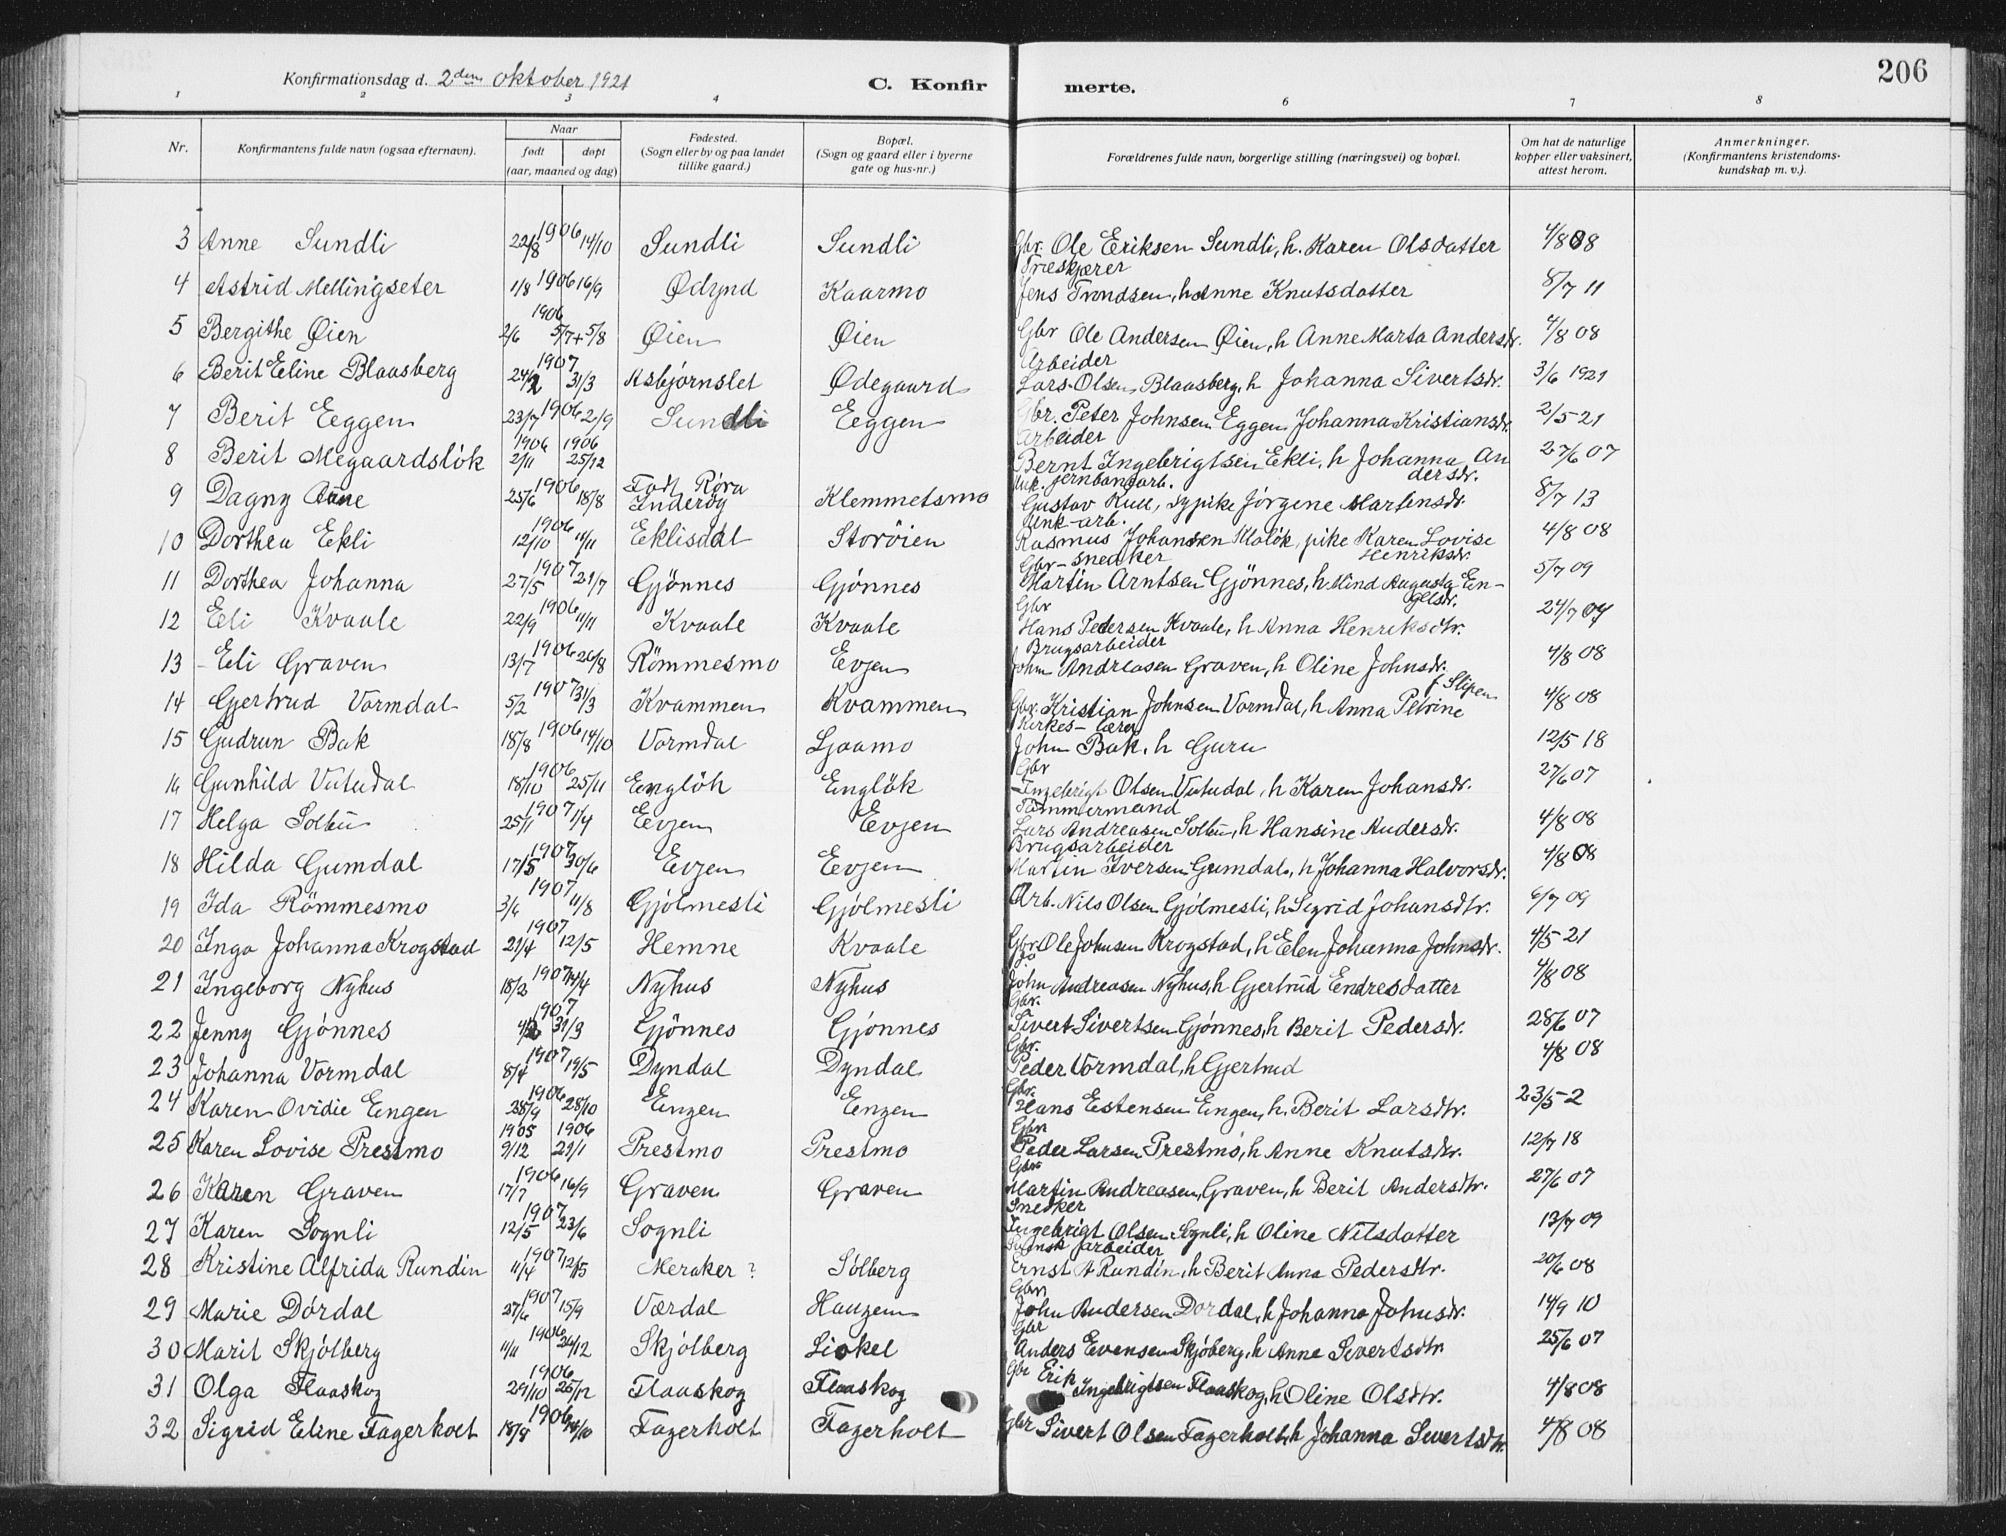 206
Konfirmationsdag d. 2den oktober 1921 C. Konfirmerte.
1 2 3 4 6 7 8
Nr. Konfirmantens fulde navn (ogsaa efternavn). Naar født døpt (aar, maaned og dag) Fødested. (Sogn eller by og paa landet tillike gaard.) Bopæl. (Sogn og gaard eller i byerne gate og hus-nr.) Forældrenes fulde navn, borgerlige stilling (næringsvei) og bopæl. Om hat de naturlige kopper eller vaksinert, attest herom. Anmerkninger. (Konfirmantens kristendoms-kundskap m. v.).
3 Anne Sundli 22/8 1906 14/10 Sundli Sundli Gbr. Ole Eriksen Sundli, h. Karen Olsdatter 4/8 08
4 Astrid Mellingseter 1/8 1906 16/9 Ødynd Kaarmo Træskjærer Jens Trondsen, h Anne Knutsdatter 8/7 11
5 Bergithe Øien 2/6 1906 5/7+5/8 Øien Øien Gbr Ole Andersen Øien, h Anne Marta Andersdr. 4/8 08
6 Berit Eline Blaasberg 24/2 1907 31/3 Asbjørnslet Ødegaard Arbeider Lars Olsen Blaasberg, h Johanna Sivertsdr. 3/6 1921
7 Berit Eggen 23/7 1906 2/9 Sundli Eggen Gbr. Peter Johnsen Eggen Johanna Kristiansdr. 2/5 21
8 Berit Megaardslök 1906 2/11 1906 25/12 Arbeider Bernt Ingebrigtsen Ekli, h Johanna Andersdr. 27/6 07
9 Dagny Aune 25/6 1906 18/8 Födt Røra Inderøy Klemmetsmo Unk. jernbanearb. Gustav Kull, sypike Jörgine Martinsdr. 8/7 13
10 Dorthea Ekli 12/10 1906 11/11 Eklisdal Storöien Unk-arb. Rasmus Johansen Kalök, pike Karen Lovise Henriksdr. 4/8 08
11 Dorthea Johanna 27/5 1907 21/7 Gjönnes Gjönnes Gbr-snedker Martin Arntsen Gjönnes, h Mind Augusta Engelsdr. 5/7 09
12 Eli Kvaale 22/9 1906 11/11 Kvaale Kvaale Gbr Hans Pedersen Kvaale, h Anna Henriksdtr. 24/7 07
13 Eli Graven 13/7 1906 26/8 Römmesmo Evjen Brugsarbeider John Andreasen Graven, h Oline Johnsdr. 4/8 08
14 Gjertrud Vormdal 5/2 1907 31/3 Kvammen Kvammen Gbr. Kristian Johnsen Vormdal, h Anna Petrine f. Slipen 4/8 08
15 Gudrun Bak 18/8 1906 14/10 Vormdal Ljaamo Kirkes-lærer John Bak, h Guru 12/5 18
16 Gunhild Vutudal 18/10 1906 25/11 Englök Englök Gbr Ingebrigt Olsen Vutudal, h Karen Johansdr. 27/6 07
17 Helga Solbu 25/1 1907 1/4 Evjen Evjen Tömmermand Lars Andreasen Solbu, h Hansine Andersdr. 4/8 08
18 Hilda Gumdal 17/5 1907 30/6 Evjen Evjen Brugsarbeider Martin Iversen Gumdal, h Johanna Halvorsdr. 4/8 08
19 Ida Römmesmo 3/6 1907 11/8 Gjölmesli Gjölmesli Arb. Nils Olsen Gjölmesli, h Sigrid Johansdtr. 6/7 09
20 Inga Johanna Krogstad 21/4 1907 12/5 Hemne Kvaale Gbr. Ole Johnsen Krogstad, h Elen Johanna Johnsdr. 4/5 21
21 Ingeborg Nyhus 18/2 1907 14/4 Nyhus Nyhus John Andreasen Nyhus, h Gjertrud Endresdatter 4/8 08
22 Jenny Gjönnes 4/2 1907 31/3 Gjönnes Gjönnes Gbr. Sivert Sivertsen Gjönnes, h Berit Pedersdr. 28/6 07
23 Johanna Vormdal 8/4 1907 19/5 Dyndal Dyndal Gbr. Peder Vormdal, h Gjertrud 4/8 08
24 Karen Ovidie Engen 28/9 1906 28/10 Engen Engen Gbr. Hans Estensen Engen, h. Berit Larsdtr. 23/5-2
25 Karen Lovise Prestmo 1905 9/12 1906 21/1 Prestmo Prestmo Gbr. Peder Larsen Prestmo, h Anne Knutsdr. 12/7 18
26 Karen Graven 17/7 1906 16/9 Graven Graven Gbr Martin Andreasen Graven, h Berit Andersdtr. 27/6 07
27 Karen Sognli 12/5 1907 23/6 Sognli Snedker Ingebrigt Olsen Sognli, h Oline Nilsdatter 13/7 09
28 Kristine Alfrida Rundin 11/4 1907 12/5 Meraker? Solberg Svensk arbeider Ernst A Rundin, h Berit Anna Pedersdtr. 20/6 08
29 Marie Dördal 27/6 1907 15/9 Værdal Haugen Gbr John Andersen Dördal, h Johanna Johnsdr. 14/9 10
30 Marit Skjölberg 11/11 1906 26/12 Skjölberg Liokel Gbr Anders Evensen Skjöberg, h Anne Sivertsdtr 25/6 07
31 Olga Flaaskog 29/10 1906 26/12 Flaaskog Flaaskog Gbr Erik Ingebrigtsen Flaaskog, h Oline Olsdtr. 4/8 08
32 Sigrid Eline Fagerholt 18/8 1906 14/10 Fagerholt Fagerholt Gbr Sivert Olsen Fagerholt, h Johanna Sivertsdtr. 4/8 08